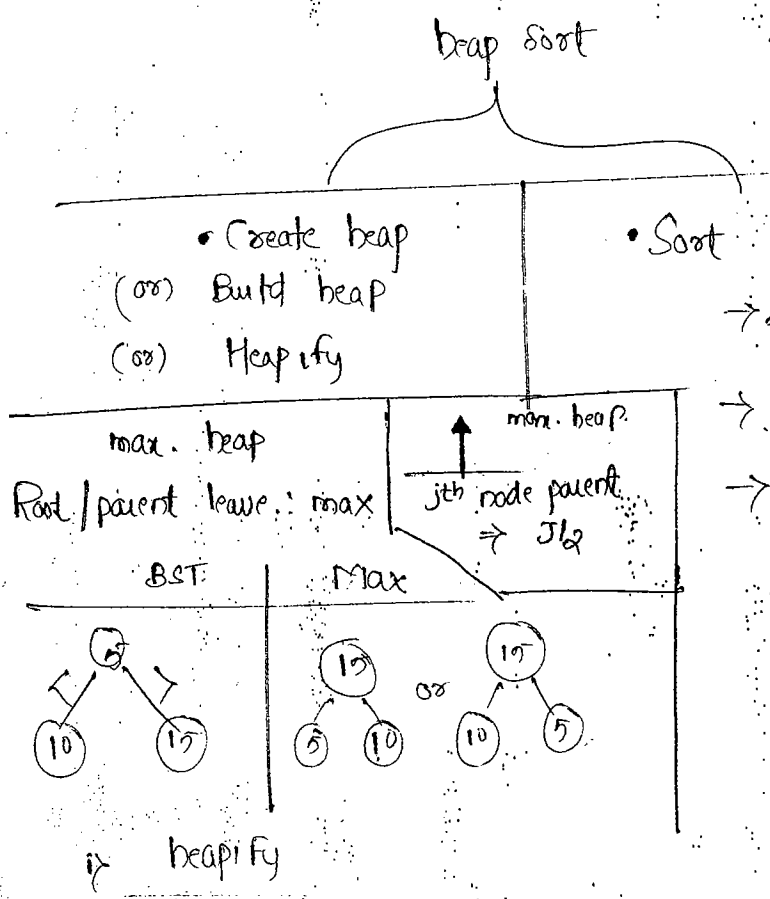 heap sort
• Create heap
• Sort
(or) Build heap
(or) Heapify
max. heap
max. heap.
Root / parent leave : max
jth node parent
⇒ J/2
BST
Max
5
10
15
15
5
10
or
15
10
5
i) heapify